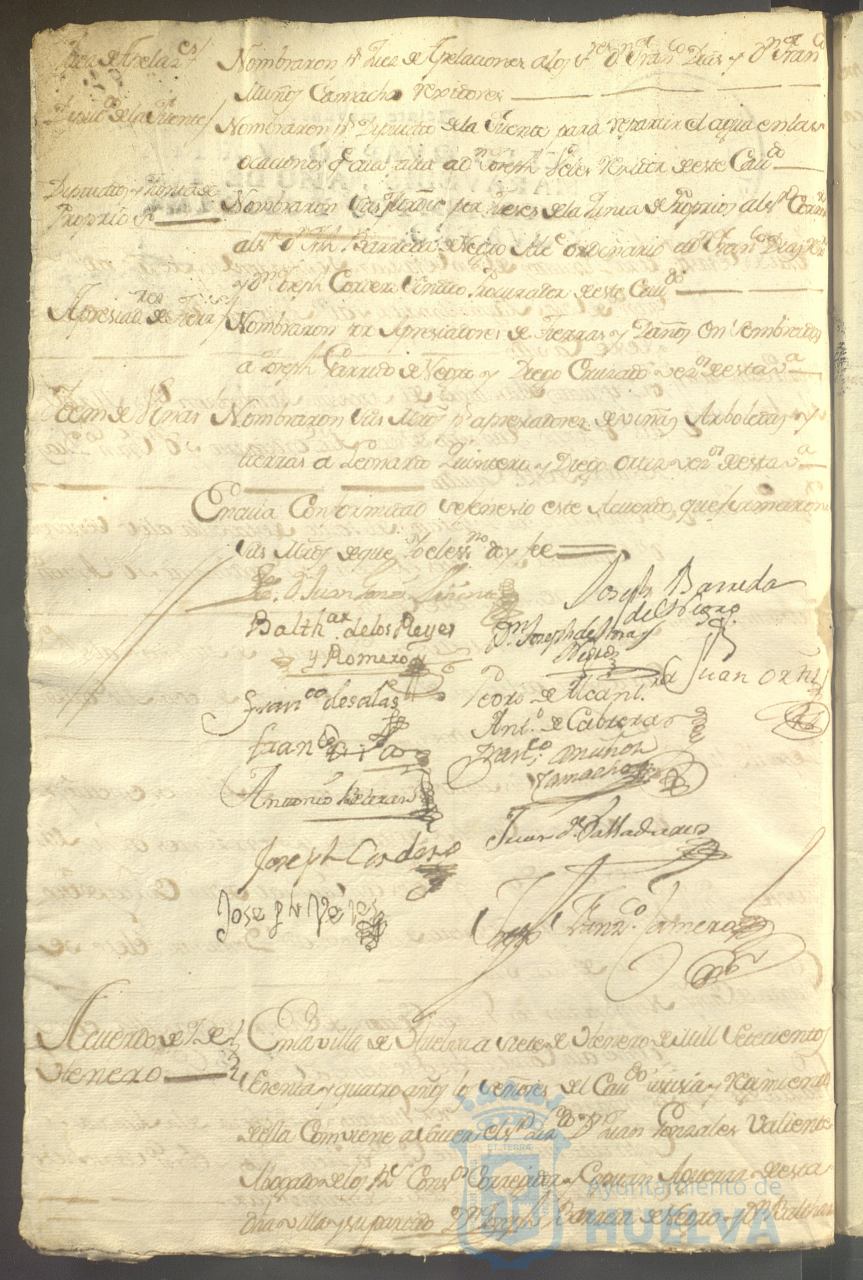 Juez de Apelaz.es
Nombraron pr Juez de Apelaciones a los Sres dn Franco Dias y dn Franco
Muños Camacho Rexidores
Diputo de la Fuente
Nombraron pr Diputado de la Fuente para repartir el agua en las
ocaciones qe aia a dn Joseph Veles Rexidor de este Cavdo
Diputados y Junta de
Proprios
Nombraron sus por de la Junta de Proprios al sr Corr
al sr dn Jph Barreda de Negro Alce ordinario a dn Franco Dias
y dn Joseph Cordero Sindico Procurador de este Cavdo
Apresiadres de Tierra
Nombraron por Apresiadores de Tierras y Daños en sembrados
a Joseph Garrido de Negro y Diego Cruzado veznos de esta va
Idem de Viñas
Nombraron sus Mrds pr apresiadores de viñas Arboledas y
tierras a Leonardo Quintero y Diego Ortiz veznos de esta va
En cuia Conformidad se fenesio este Acuerdo que firmaron
sus Mrds de que Yo el essno doy fee
Joseph Barreda
de Negro
Balthar. de los Reyes
y Romero
Dn Joseph de
Negro
Juan
Franco de salas
Pedro de Alcant.ra
Franco
Anto. de Cabrera
Franco. Muños
Camacho
Antonio Beltran
Juan de Valladares
Joseph Cordero
Joseph Veles
Franco. Zamera
Acuerdo de 7 de
Henero
En la villa de Huelva a siete de Henero de Mill Setecientos
Treinta y quatro años los señores del Cavdo Justisia y Reximiento
della Combiene a saver el sr Lizdo Dn Juan Gonzales Valiente
Abogado de los Rs Consos Correxidor y Capitan Aguerra de esta
dha villa y su partido Dn Joseph Barreda de Negro y Dn Balthasar
Ayuntamiento de
HUELVA